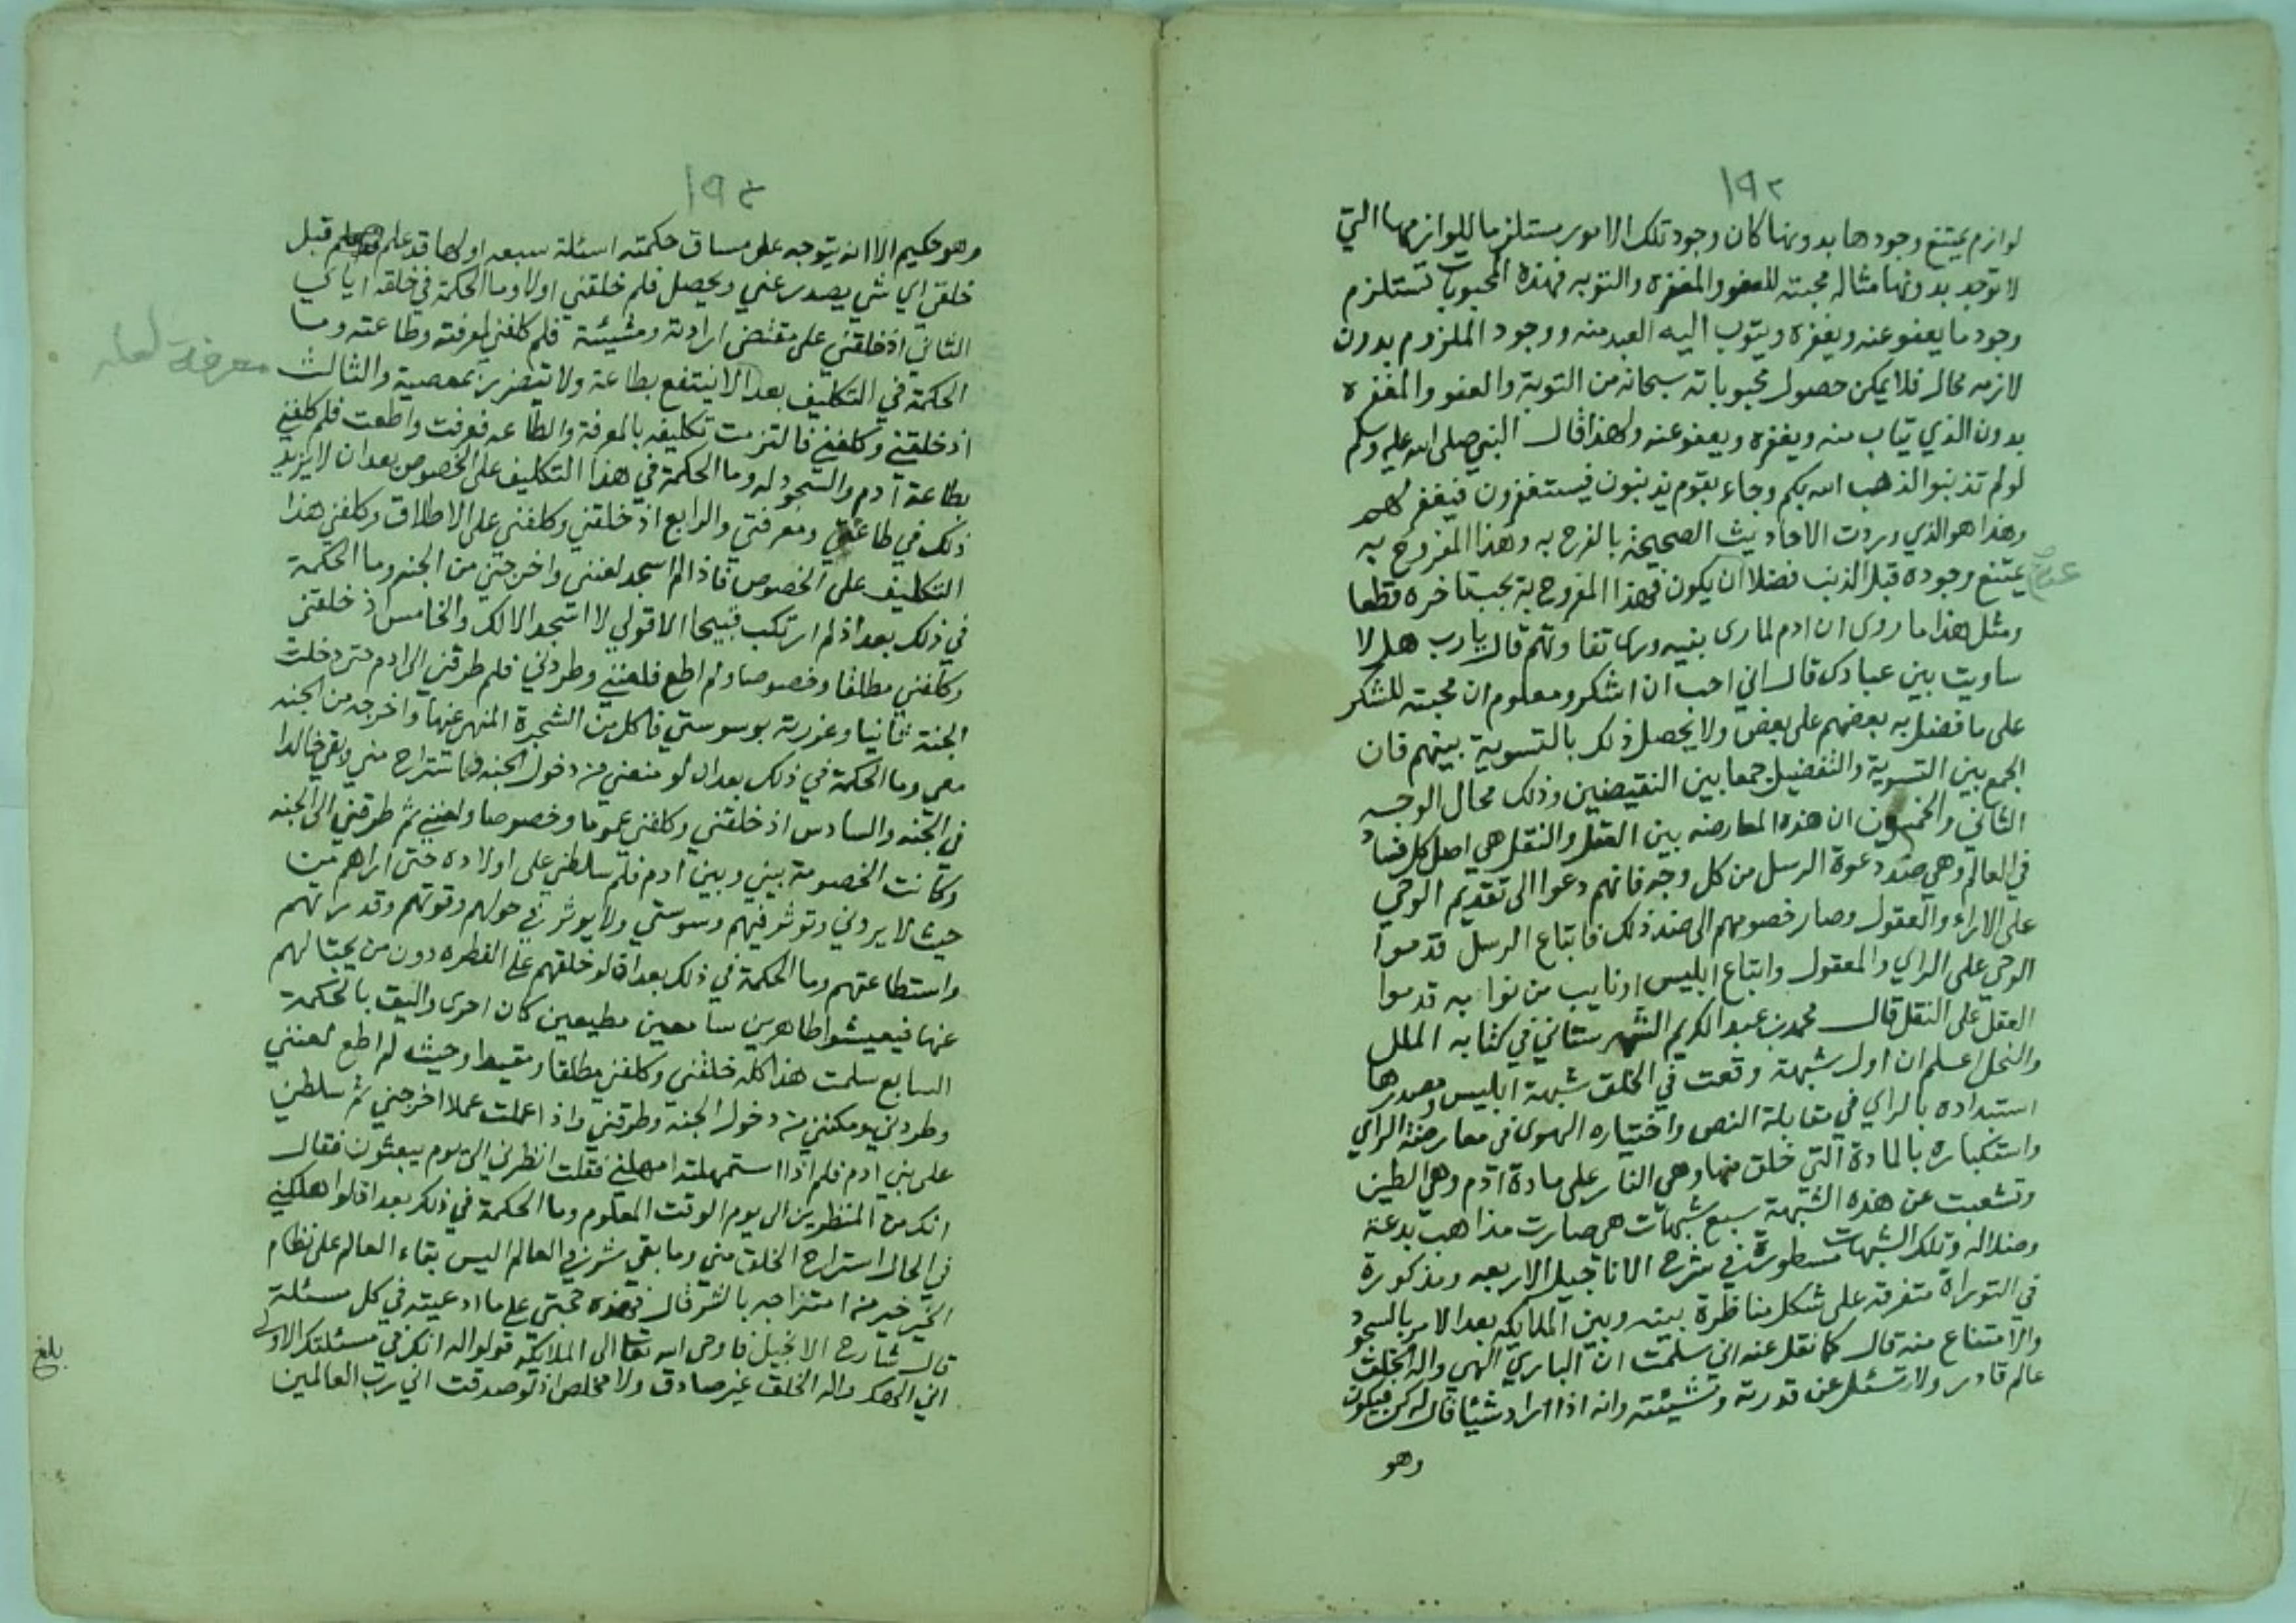 ١٩٣
لوازم يمتنع وجودها بدونها كان وجود تلك الامور مستلزما للوازمها التي
لا توجد بدونها مثاله محبته للعفو والمغفرة والتوبه فهذه المحبوبات تستلزم
وجود ما يعفو عنه ويغفره ويتوب اليه العبد منه ووجود الملزوم بدون
لازمه محال فلا يمكن حصول محبوباته سبحانه من التوبة والعفو والمغفره
بدون الذي يتاب منه ويغفره ويعفو عنه ولهذا قال النبي صلى الله عليه وسلم
لو لم تذنبوا لذهب الله بكم وجاء بقوم يذنبون فيستغفرون فيغفر لهم
وهذا هو الذي وردت الاحاديث الصحيحة بالفرح به وهذا المفروح به
يمتنع وجوده قبل الذنب فضلا ان يكون فهذا المفروح به يجب تاخره قطعا
ومثل هذا ما روى ان ادم لما رى بنيه ورى تفاوتهم قال يا رب هلا
ساويت بين عبادك قال اني احب ان اشكر ومعلوم ان محبته للشكر
على ما فضل به بعضهم على بعض ولا يحصل ذلك بالتسوية بينهم فان
الجمع بين التسوية والتفضيل جمعا بين النقيضين وذلك محال الوجه
الثاني والخمسون ان هذه المعارضه بين العقل والنقل هي اصل كل فساد
في العالم وهي ضد دعوة الرسل من كل وجه فانهم دعوا الى تقديم الوحي
على الاراء والعقول وصار خصومهم الى ضد ذلك فاتباع الرسل قدموا
الوحي على الراي والمعقول واتباع ابليس او نايب من نوابه قدموا
العقل على النقل قال محمد بن عبد الكريم الشهرستاني في كتابه الملل
والنحل اعلم ان اول شبهة وقعت في الخلق شبهة ابليس ومصدرها
استبداده بالراي في مقابلة النص واختياره الهوى في معارضة الراي
واستكباره بالمادة التي خلق منها وهي النار على مادة ادم وهي الطين
وتشعبت عن هذه الشبهة سبع شبهات هي صارت مذاهب بدعة
وضلاله وتلك الشبهات مسطورة في شرح الاناجيل الاربعه ومذكورة
في التوراة متفرقة على شكل مناظرة بينه وبين الملايكه بعد الامر بالسجود
والامتناع منه قال كما نقل عنه اني سلمت ان الباري الهي واله الخلق
عالم قادر ولا يسئل عن قدرته ومشيئته وانه اذا اراد شيئا قال له كن فيكون
وهو
١٩٤
وهو حكيم الا انه يتوجه على مساق حكمته اسئلة سبعه اولها قد علم قبل
خلقي اي شي يصدر عني ويحصل فلم خلقني اولا وما الحكمة في خلقه اياي
الثاني اذ خلقني على مقتضى ارادته ومشيئته فلم كلفني لمعرفته وطاعته وما
الحكمة في التكليف بعد الا ينتفع بطاعة ولا يتضرر بمعصية والثالث
معرفة لعله
اذ خلقني وكلفني فالتزمت تكليفه بالمعرفة والطاعه فعرفت واطعت فلم كلفني
بطاعة آدم والسجود له وما الحكمة في هذا التكليف على الخصوص بعد ان لا يزيد
ذلك في طاعتي ومعرفتي والرابع اذ خلقني وكلفني على الاطلاق وكلفني هذا
التكليف على الخصوص فاذا لم اسجد لعنني واخرجني من الجنه وما الحكمة
في ذلك بعد اذ لم ارتكب قبيحا الا قولي لا اسجد الا لك والخامس اذ خلقني
وكلفني مطلقا وخصوصا ولم اطع فلعنني وطردني فلم طرقني الى ادم حتى دخلت
الجنة ثانيا وغررته بوسوستي فاكل من الشجرة المنهي عنها واخرجه من الجنه
معي وما الحكمة في ذلك بعد ان لو منعني من دخول الجنه لاستراح مني وبقي خالدا
في الجنه والسادس اذ خلقني وكلفني عموما وخصوصا ولعنني ثم طرقني الى الجنه
وكانت الخصومة بيني وبين ادم فلم سلطني على اولاده حتى اراهم من
حيث لا يروني وتوثر فيهم وسوستي ولا يوثر في حولهم وقوتهم وقدرتهم
واستطاعتهم وما الحكمة في ذلك بعد ان لو خلقهم على الفطره دون من يجتالهم
عنها فيعيشوا طاهرين سامعين مطيعين كان احرى واليق بالحكمة
السابع سلمت هذا كله خلقني وكلفني مطلقا ومقيدا وحيث لم اطع لعنني
وطردني ومكنني من دخول الجنة وطرقني واذا عملت عملا اخرجني ثم سلطني
على بني ادم فلم اذا استمهلته امهلني فقلت انظرني الى يوم يبعثون فقال
انك من المنظرين الى يوم الوقت المعلوم وما الحكمة في ذلك بعد اذ لو اهلكني
في الحال استراح الخلق مني وما بقي شر في العالم اليس بقاء العالم على نظام
الخير خير من امتزاجه بالشر قال فهذه حجتي على ما ادعيته في كل مسئلة
قال شارح الانجيل فاوحى الله تعالى الى الملايكة قولوا له انك في مسئلتك الاولى
اني الهك واله الخلق غير صادق ولا مخلص اذ لو صدقت اني رب العالمين
بلغ